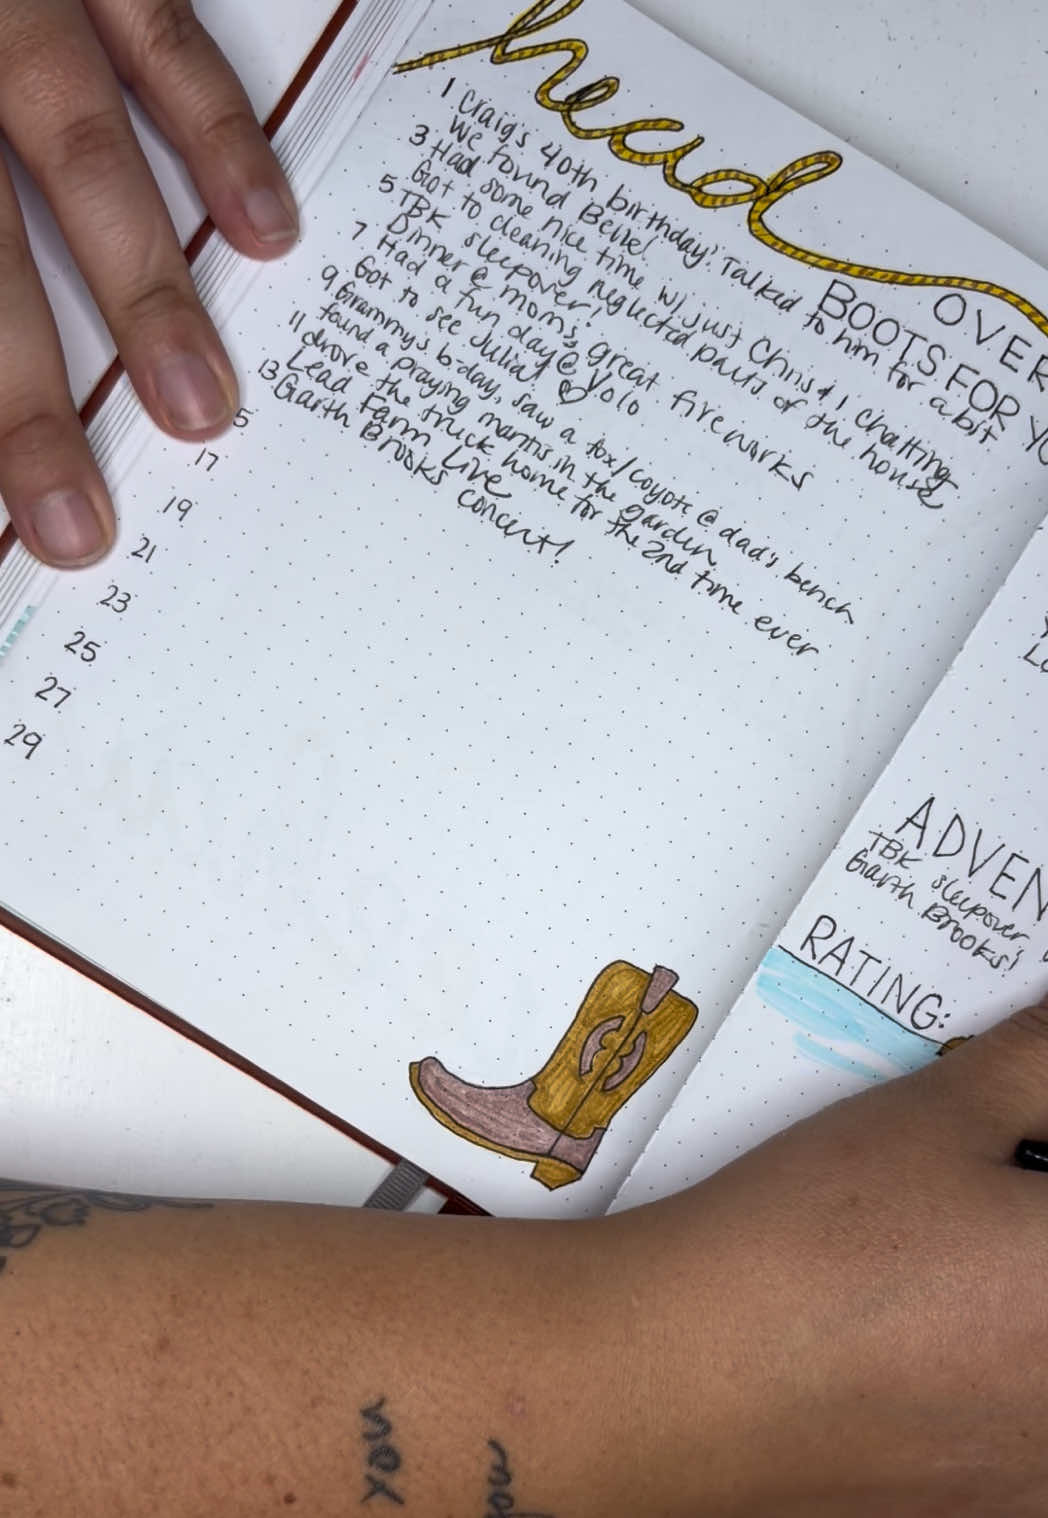 head
OVER
BOOTS FOR YO
1 Craig's 40th birthday! Talked to him for a bit
We found Belle!
3 Had some nice time w/ just Chris & I chatting
Got to cleaning neglected parts of the house
5 TBK sleepover!
Dinner @ moms, great fireworks
7 Had a fun day @ Yolo
Got to see Julia! ♡
9 Grammy's b-day, saw a fox/coyote @ dad's bench
found a praying mantis in the garden
11 drove the truck home for the 2nd time ever
Lead Farm Live
13 Garth Brooks concert!
5
17
19
21
23
25
27
29
ADVEN
TBK sleepover,
Garth Brooks!
RATING: